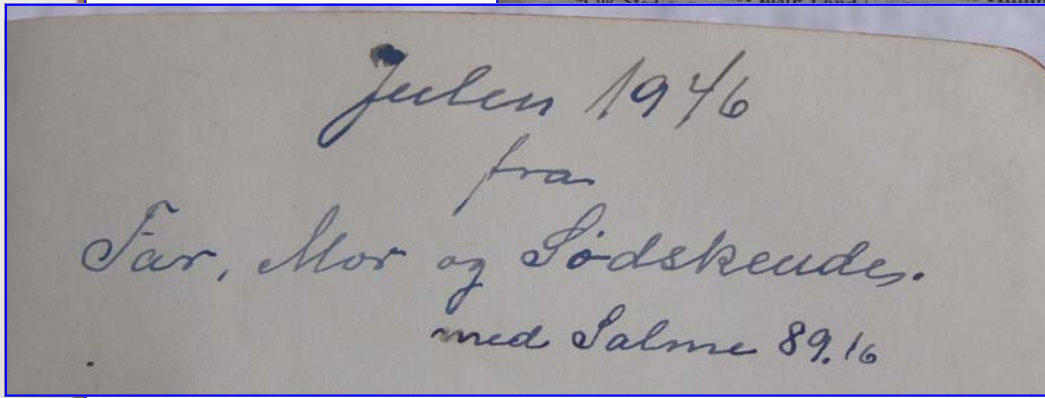 Julen 1946
fra
Far, Mor og Sødskende.
med Salme 89.16